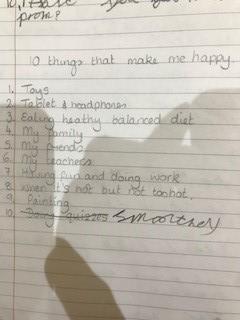 prom?
10 things that make me happy.
1. Toys
2. Tablet & headphones
3. Eating heathy balanced diet
4. My family
5. My friends
6. My teachers
7. Having fun and doing work
8. when it's hot but not too hot.
9. Painting
10. Doing quizzes